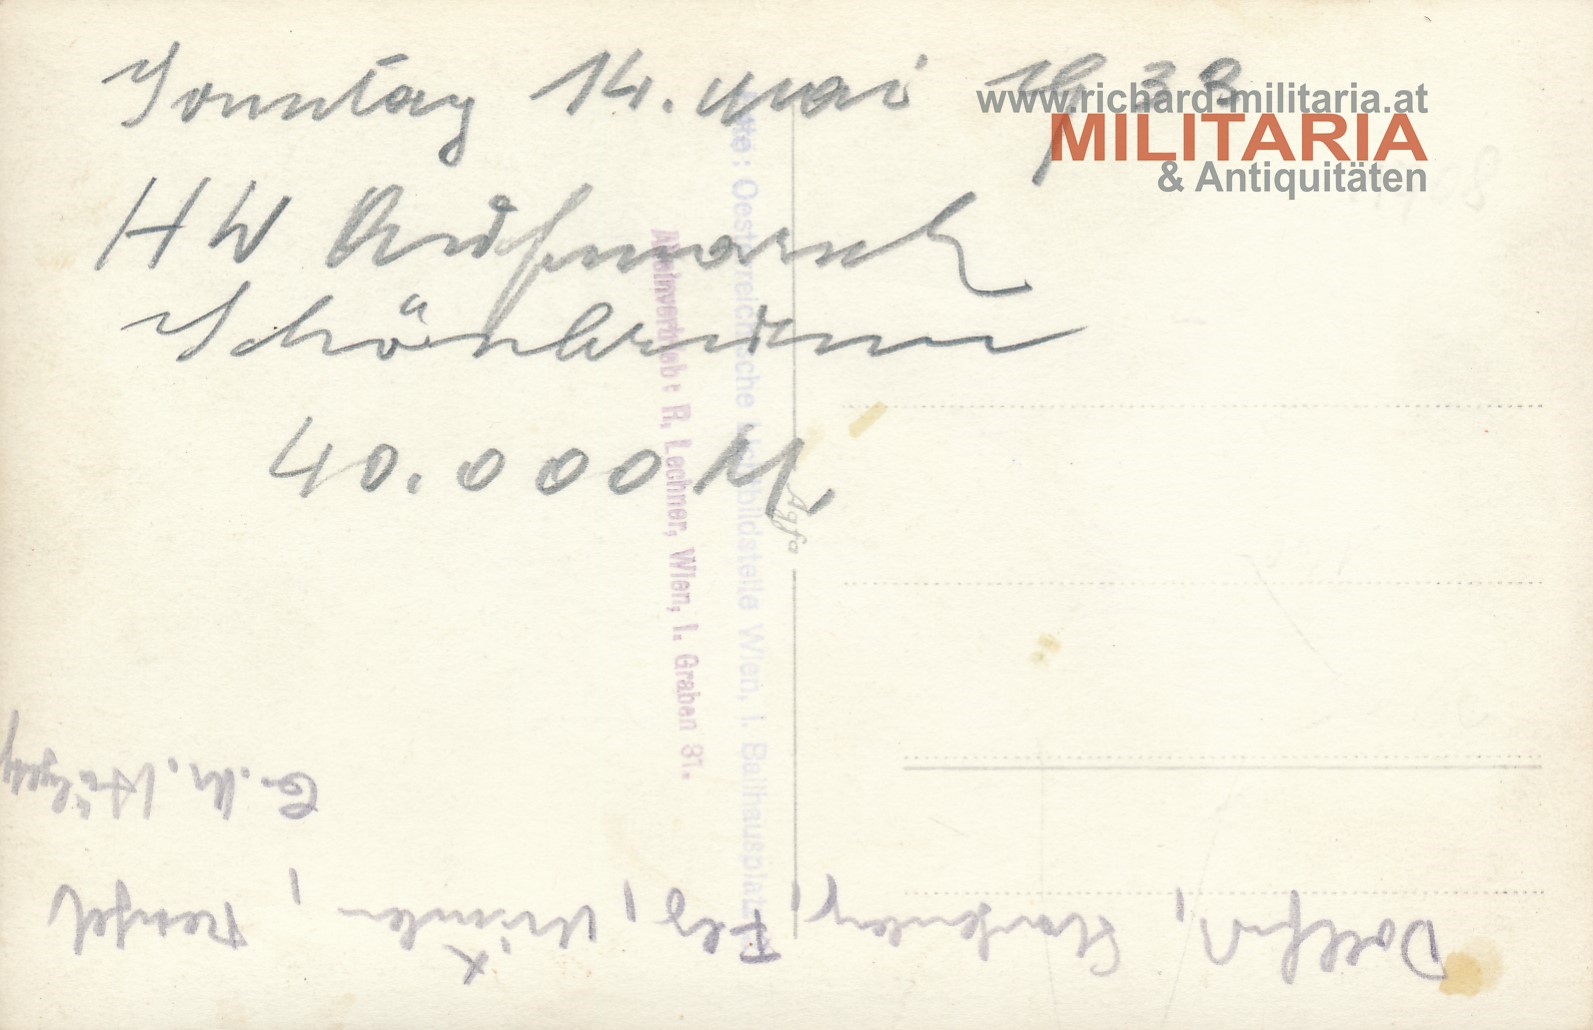 Sonntag 14. Mai 1933
www.richard-militaria.at
MILITARIA
& Antiquitäten
HW Aufmarsch
Schönbrunn
40.000 M.
Oesterreichische Lichtbildstelle Wien, I. Ballhausplatz
Alleinvertrieb: R. Lechner, Wien, I. Graben 31.
Agfa
Dollfuß, Starhemberg,
Fey,